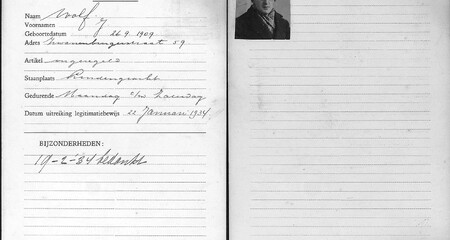 Naam Wolf
Voornamen J
Geboortedatum 26.9.1909
Adres Zwanenburgerstraat 59
Artikel ongeregeld
Staanplaats Lindengracht
Gedurende Maandag t/m Zaterdag
Datum uitreiking legitimatiebewijs 22 Januari 1934
BIJZONDERHEDEN:
19-2-34 bedankt